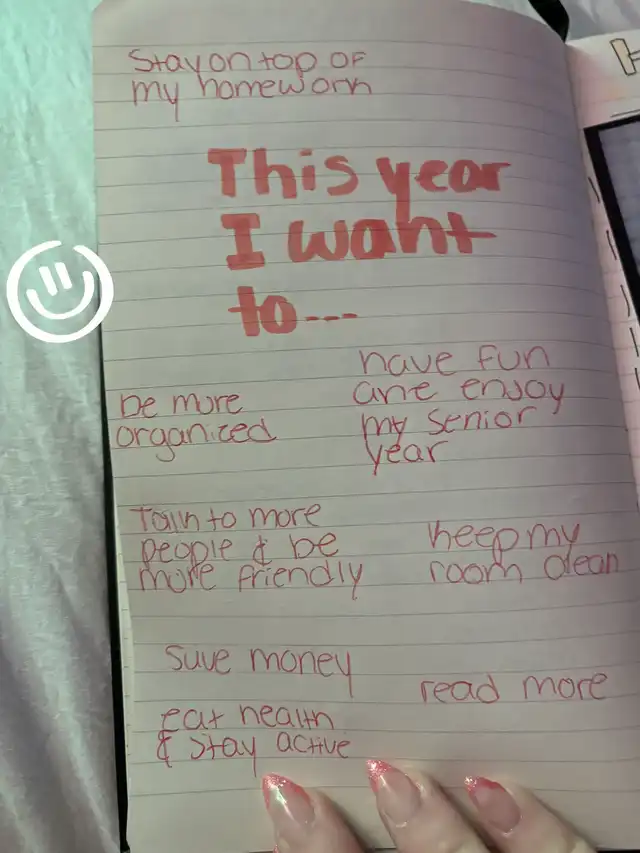 Stay on top of
my homework
This year
I want
to...
have fun
and enjoy
my senior
year
be more
organized
Talk to more
people & be
more friendly
keep my
room clean
save money
read more
eat health
& stay active